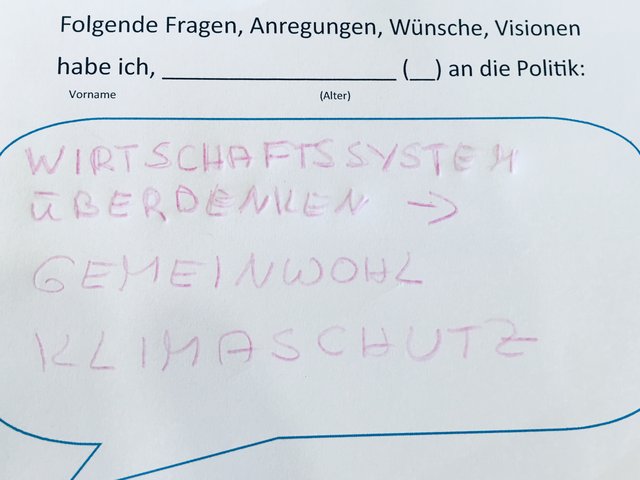 Folgende Fragen, Anregungen, Wünsche, Visionen
habe ich, ____________________ (__) an die Politik:
Vorname (Alter)
WIRTSCHAFTSSYSTEM
ÜBERDENKEN →
GEMEINWOHL
KLIMASCHUTZ